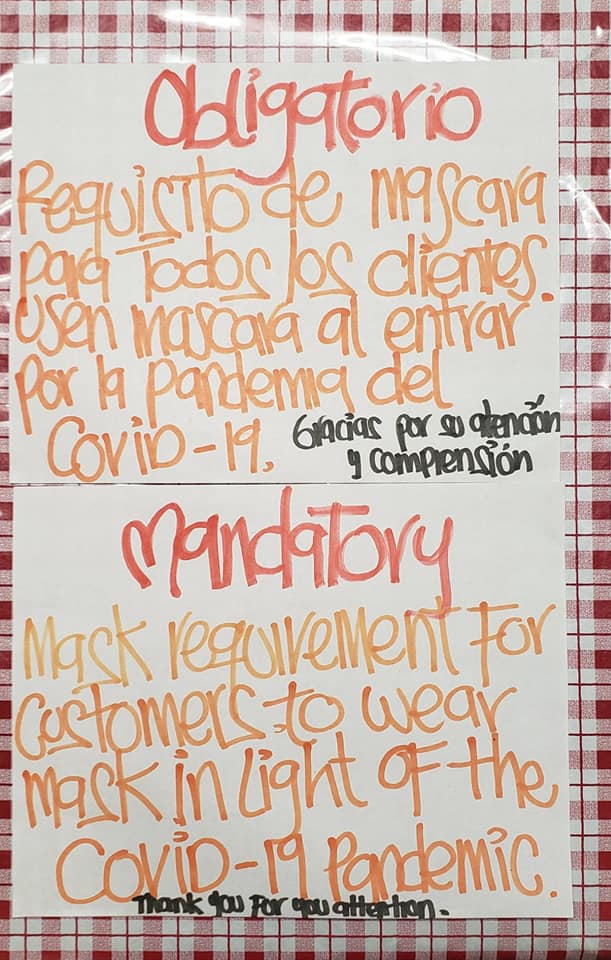 Obligatorio
Requisito de mascara
para Todos los clientes.
Usen mascara al entrar
por la pandemia del
Covid-19.
Gracias por su atención
y comprensión
Mandatory
Mask requirement For
customers to wear
mask in Light OF the
Covid-19 Pandemic.
Thank you For you attention.